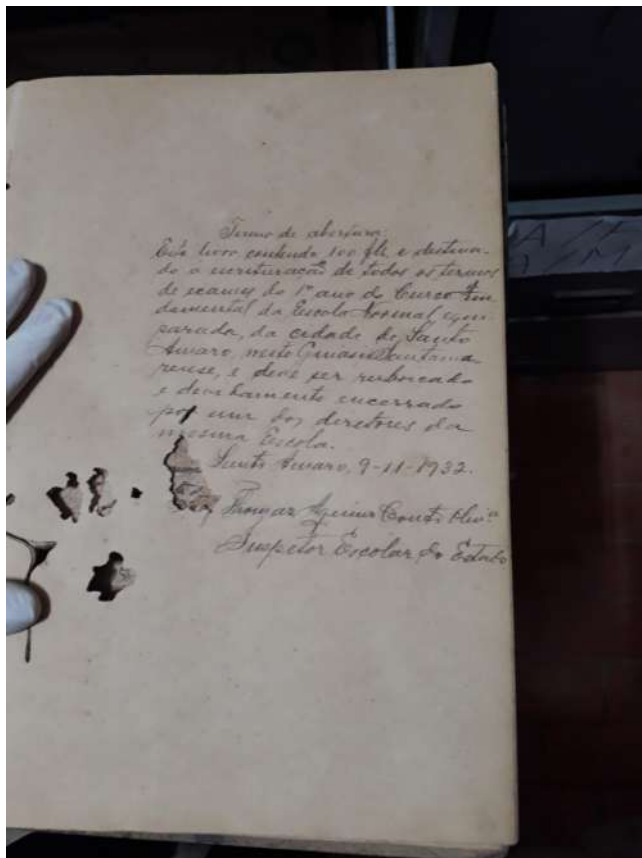 Termo de abertura
Este livro contendo 100 fls e destina-
do a escrituração de todos os termos
de exames do 1º ano do Curso Fun-
damental da Escola Normal equi-
parada, da cidade de Santo
Amaro, neste Ginasio Santama-
rense, e deve ser rubricado
e devidamente encerrado
por um dos diretores da
mesma Escola.
Santo Amaro, 9-11-1932.
Thomaz
Inspetor Escolar do Estado